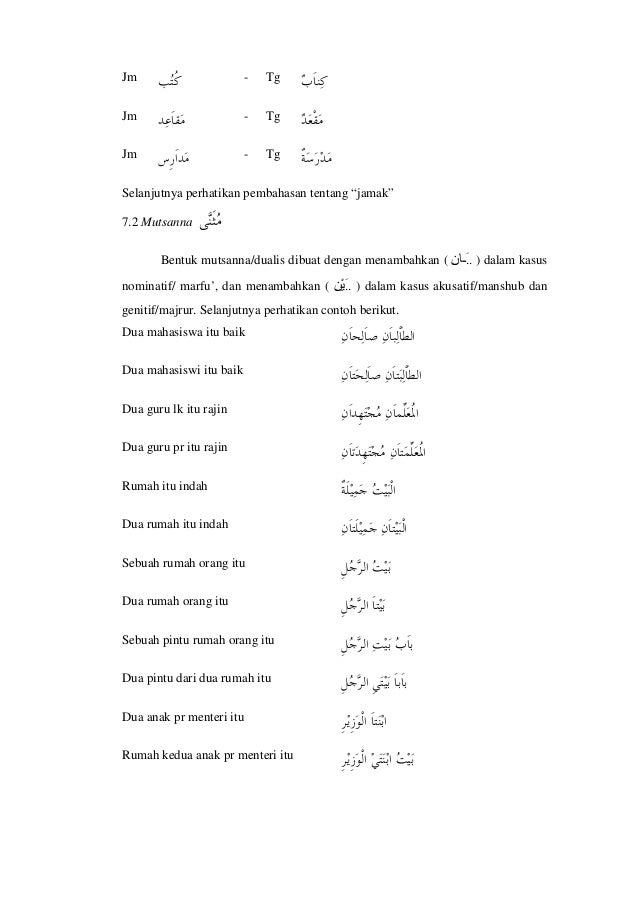 Jm كُتُب - Tg كِتاَبٌ
Jm مَقاَعِد - Tg مَقْعَدٌ
Jm مَداَرِس - Tg مَدْرَسَةٌ
Selanjutnya perhatikan pembahasan tentang “jamak”
7.2 Mutsanna مُثَنَّى
Bentuk mutsanna/dualis dibuat dengan menambahkan ( ..ـَانِ ) dalam kasus
nominatif/ marfu’, dan menambahkan ( ..ـَيْنِ ) dalam kasus akusatif/manshub dan
genitif/majrur. Selanjutnya perhatikan contoh berikut.
Dua mahasiswa itu baik الطَّالِباَنِ صاَلِحاَنِ
Dua mahasiswi itu baik الطَّالِبَتاَنِ صاَلِحَتاَنِ
Dua guru lk itu rajin الْمُعَلِّماَنِ مُجْتَهِداَنِ
Dua guru pr itu rajin الْمُعَلِّمَتاَنِ مُجْتَهِدَتاَنِ
Rumah itu indah الْبَيْتُ جَمِيْلَةٌ
Dua rumah itu indah الْبَيْتاَنِ جَمِيْلَتاَنِ
Sebuah rumah orang itu بَيْتُ الرَّجُلِ
Dua rumah orang itu بَيْتاَ الرَّجُلِ
Sebuah pintu rumah orang itu باَبُ بَيْتِ الرَّجُلِ
Dua pintu dari dua rumah itu باَباَ بَيْتَيِ الرَّجُلِ
Dua anak pr menteri itu ابْنَتاَ الْوَزِيْرِ
Rumah kedua anak pr menteri itu بَيْتُ ابْنَتَيْ الْوَزِيْرِ